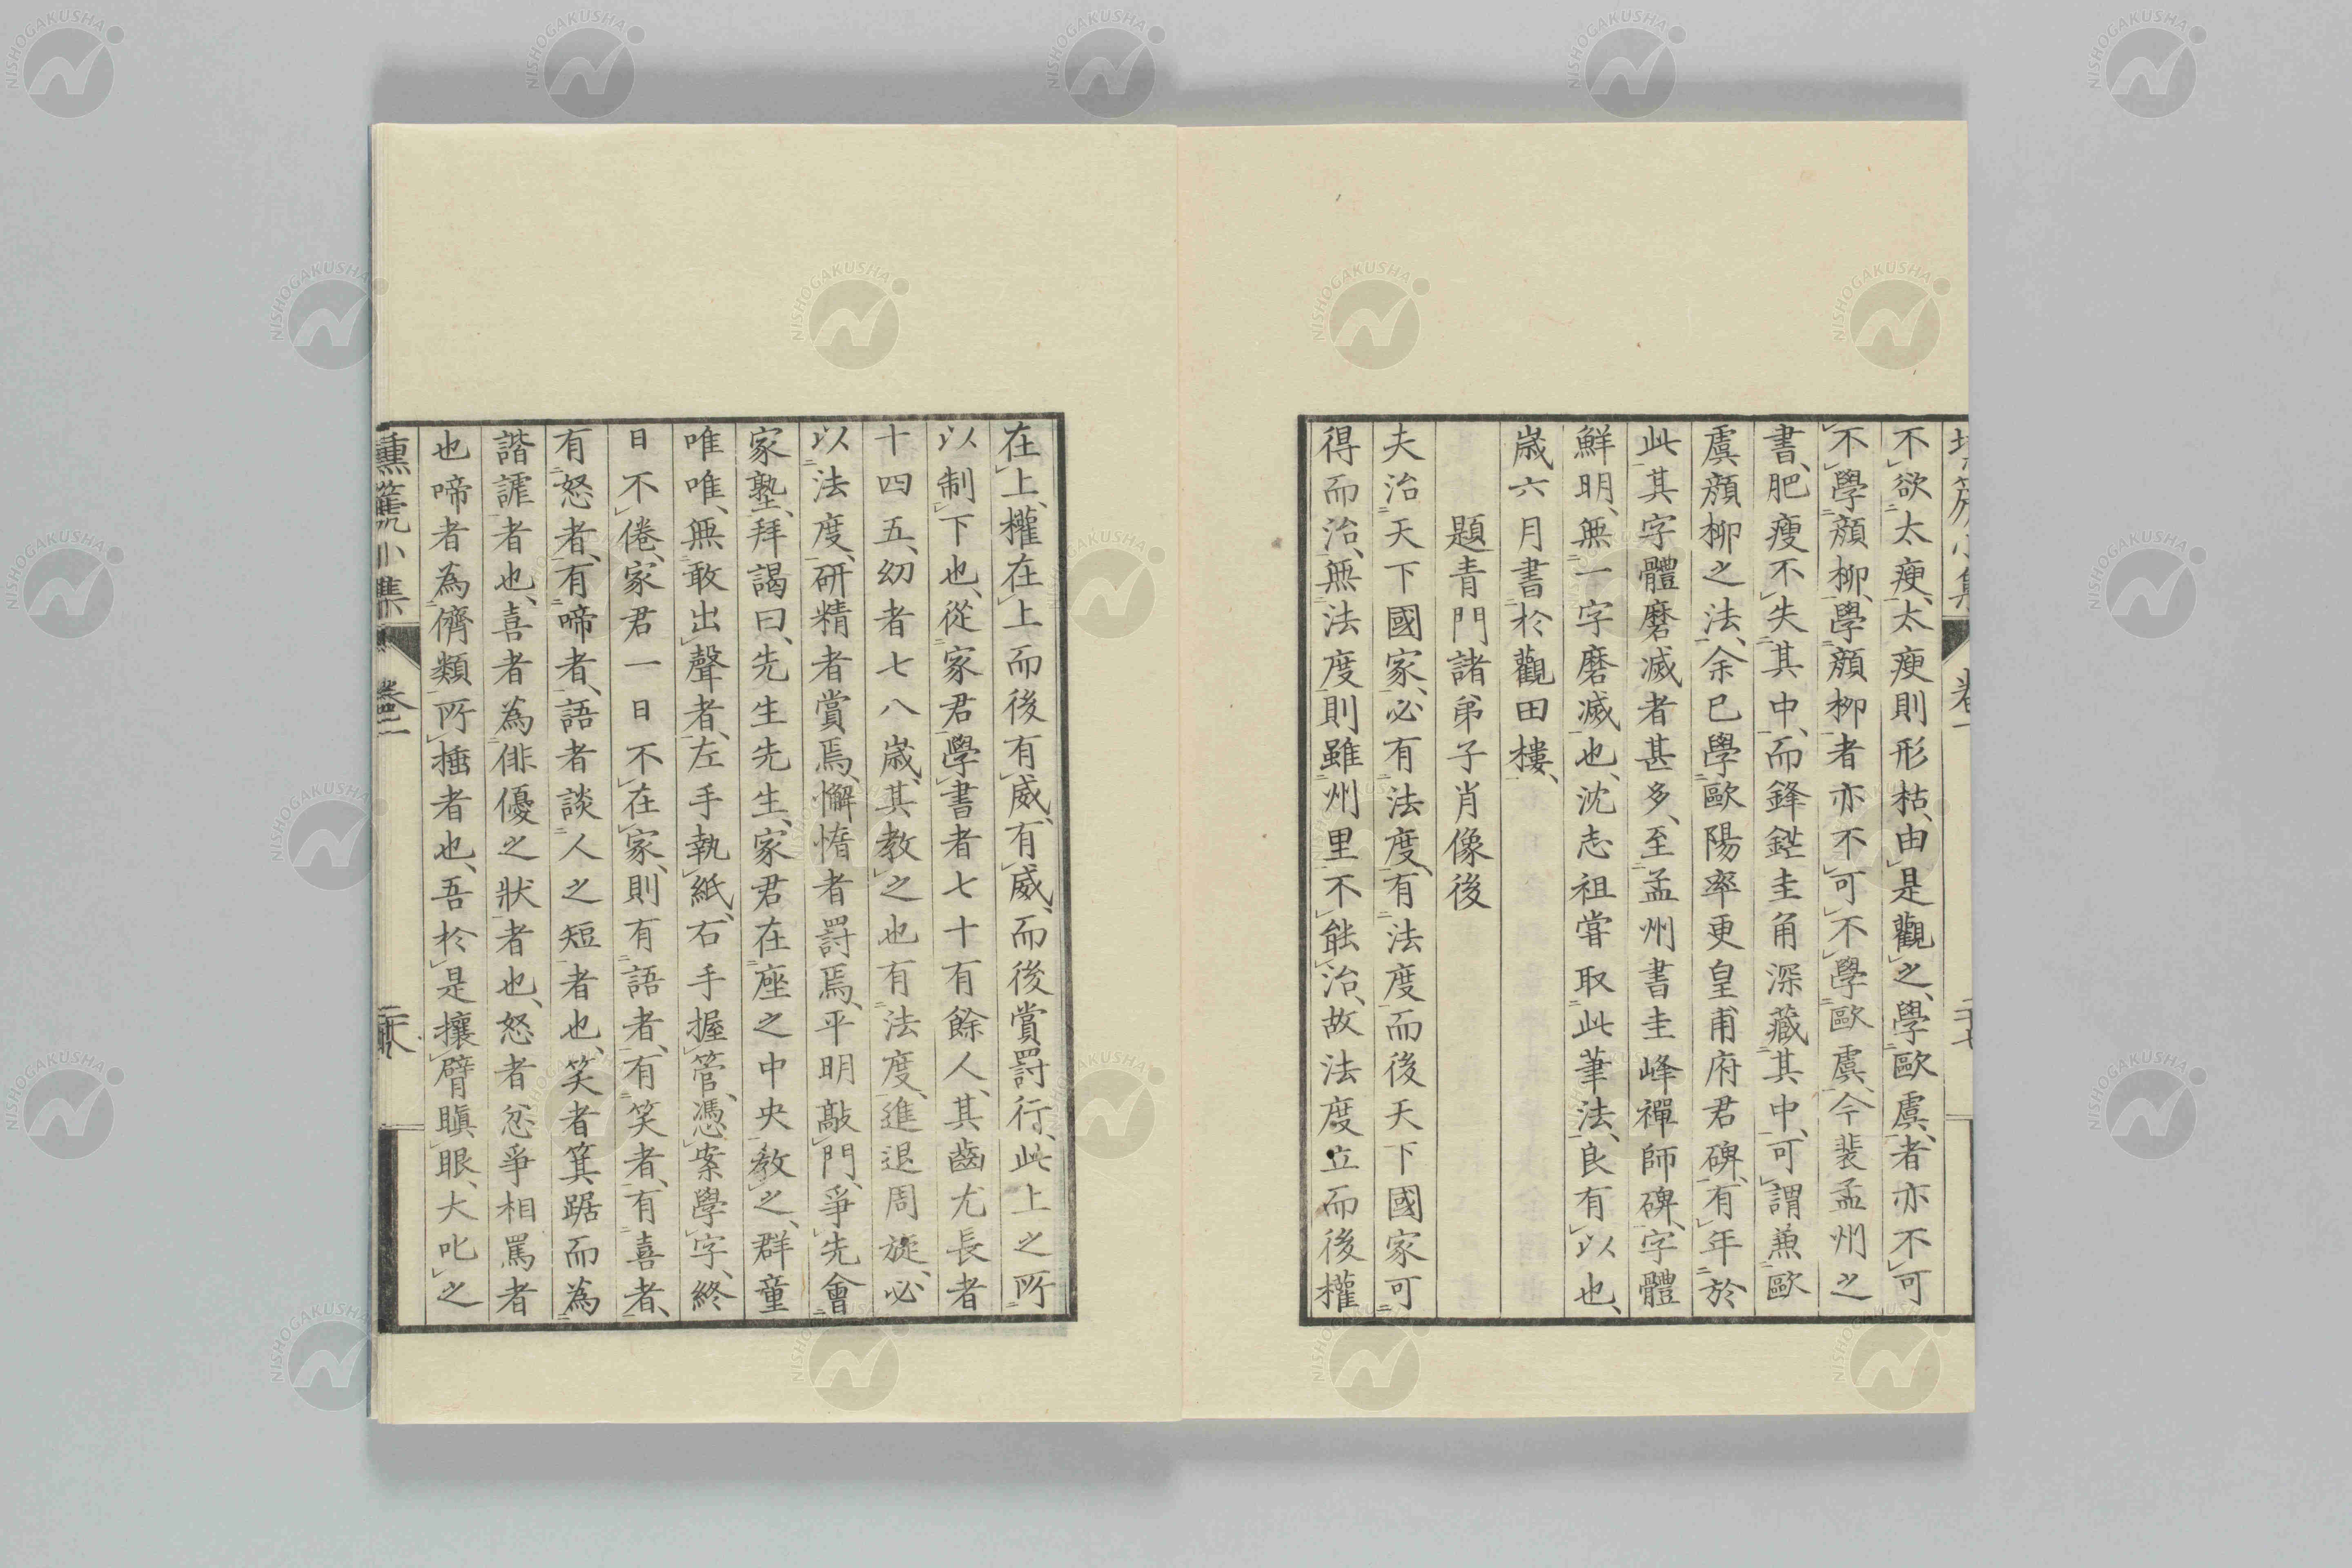 不欲太瘦、太瘦則形枯、由是觀之、學歐虞、者亦不可
不學顏柳、學顏柳者亦不可不學歐虞、今裴孟州之
書、肥瘦不失其中、而鋒鋩圭角深藏其中、可謂兼歐
虞顏柳之法、余已學歐陽率更皇甫府君碑、有年於
此、其字體磨滅者甚多、至孟州書圭峰禪師碑、字體
鮮明、無一字磨滅也、沈志祖嘗取此筆法、良有以也、
歲六月書於觀田樓、
題青門諸弟子肖像後
夫治天下國家、必有法度、有法度而後天下國家可
得而治、無法度則雖州里不能治、故法度立而後權
在上、權在上而後有威、有威、而後賞罰行、此上之所
以制下也、從家君學書者七十有餘人、其齒尤長者
十四五、幼者七八歲、其教之也有法度、進退周旋、必
以法度、研精者賞焉、懈惰者罰焉、平明敲門、爭先會
家塾、拜謁曰、先生先生、家君在座之中央教之、群童
唯唯、無敢出聲者、左手執紙、右手握管、憑案學字、終
日不倦、家君一日不在家、則有語者、有笑者、有喜者、
有怒者、有啼者、語者談人之短者也、笑者箕踞而為
諧謔者也、喜者為俳優之狀者也、怒者忿爭相罵者
也啼者為儕類所捶者也、吾於是攘臂瞋眼、大叱之
壎篪小集 卷二